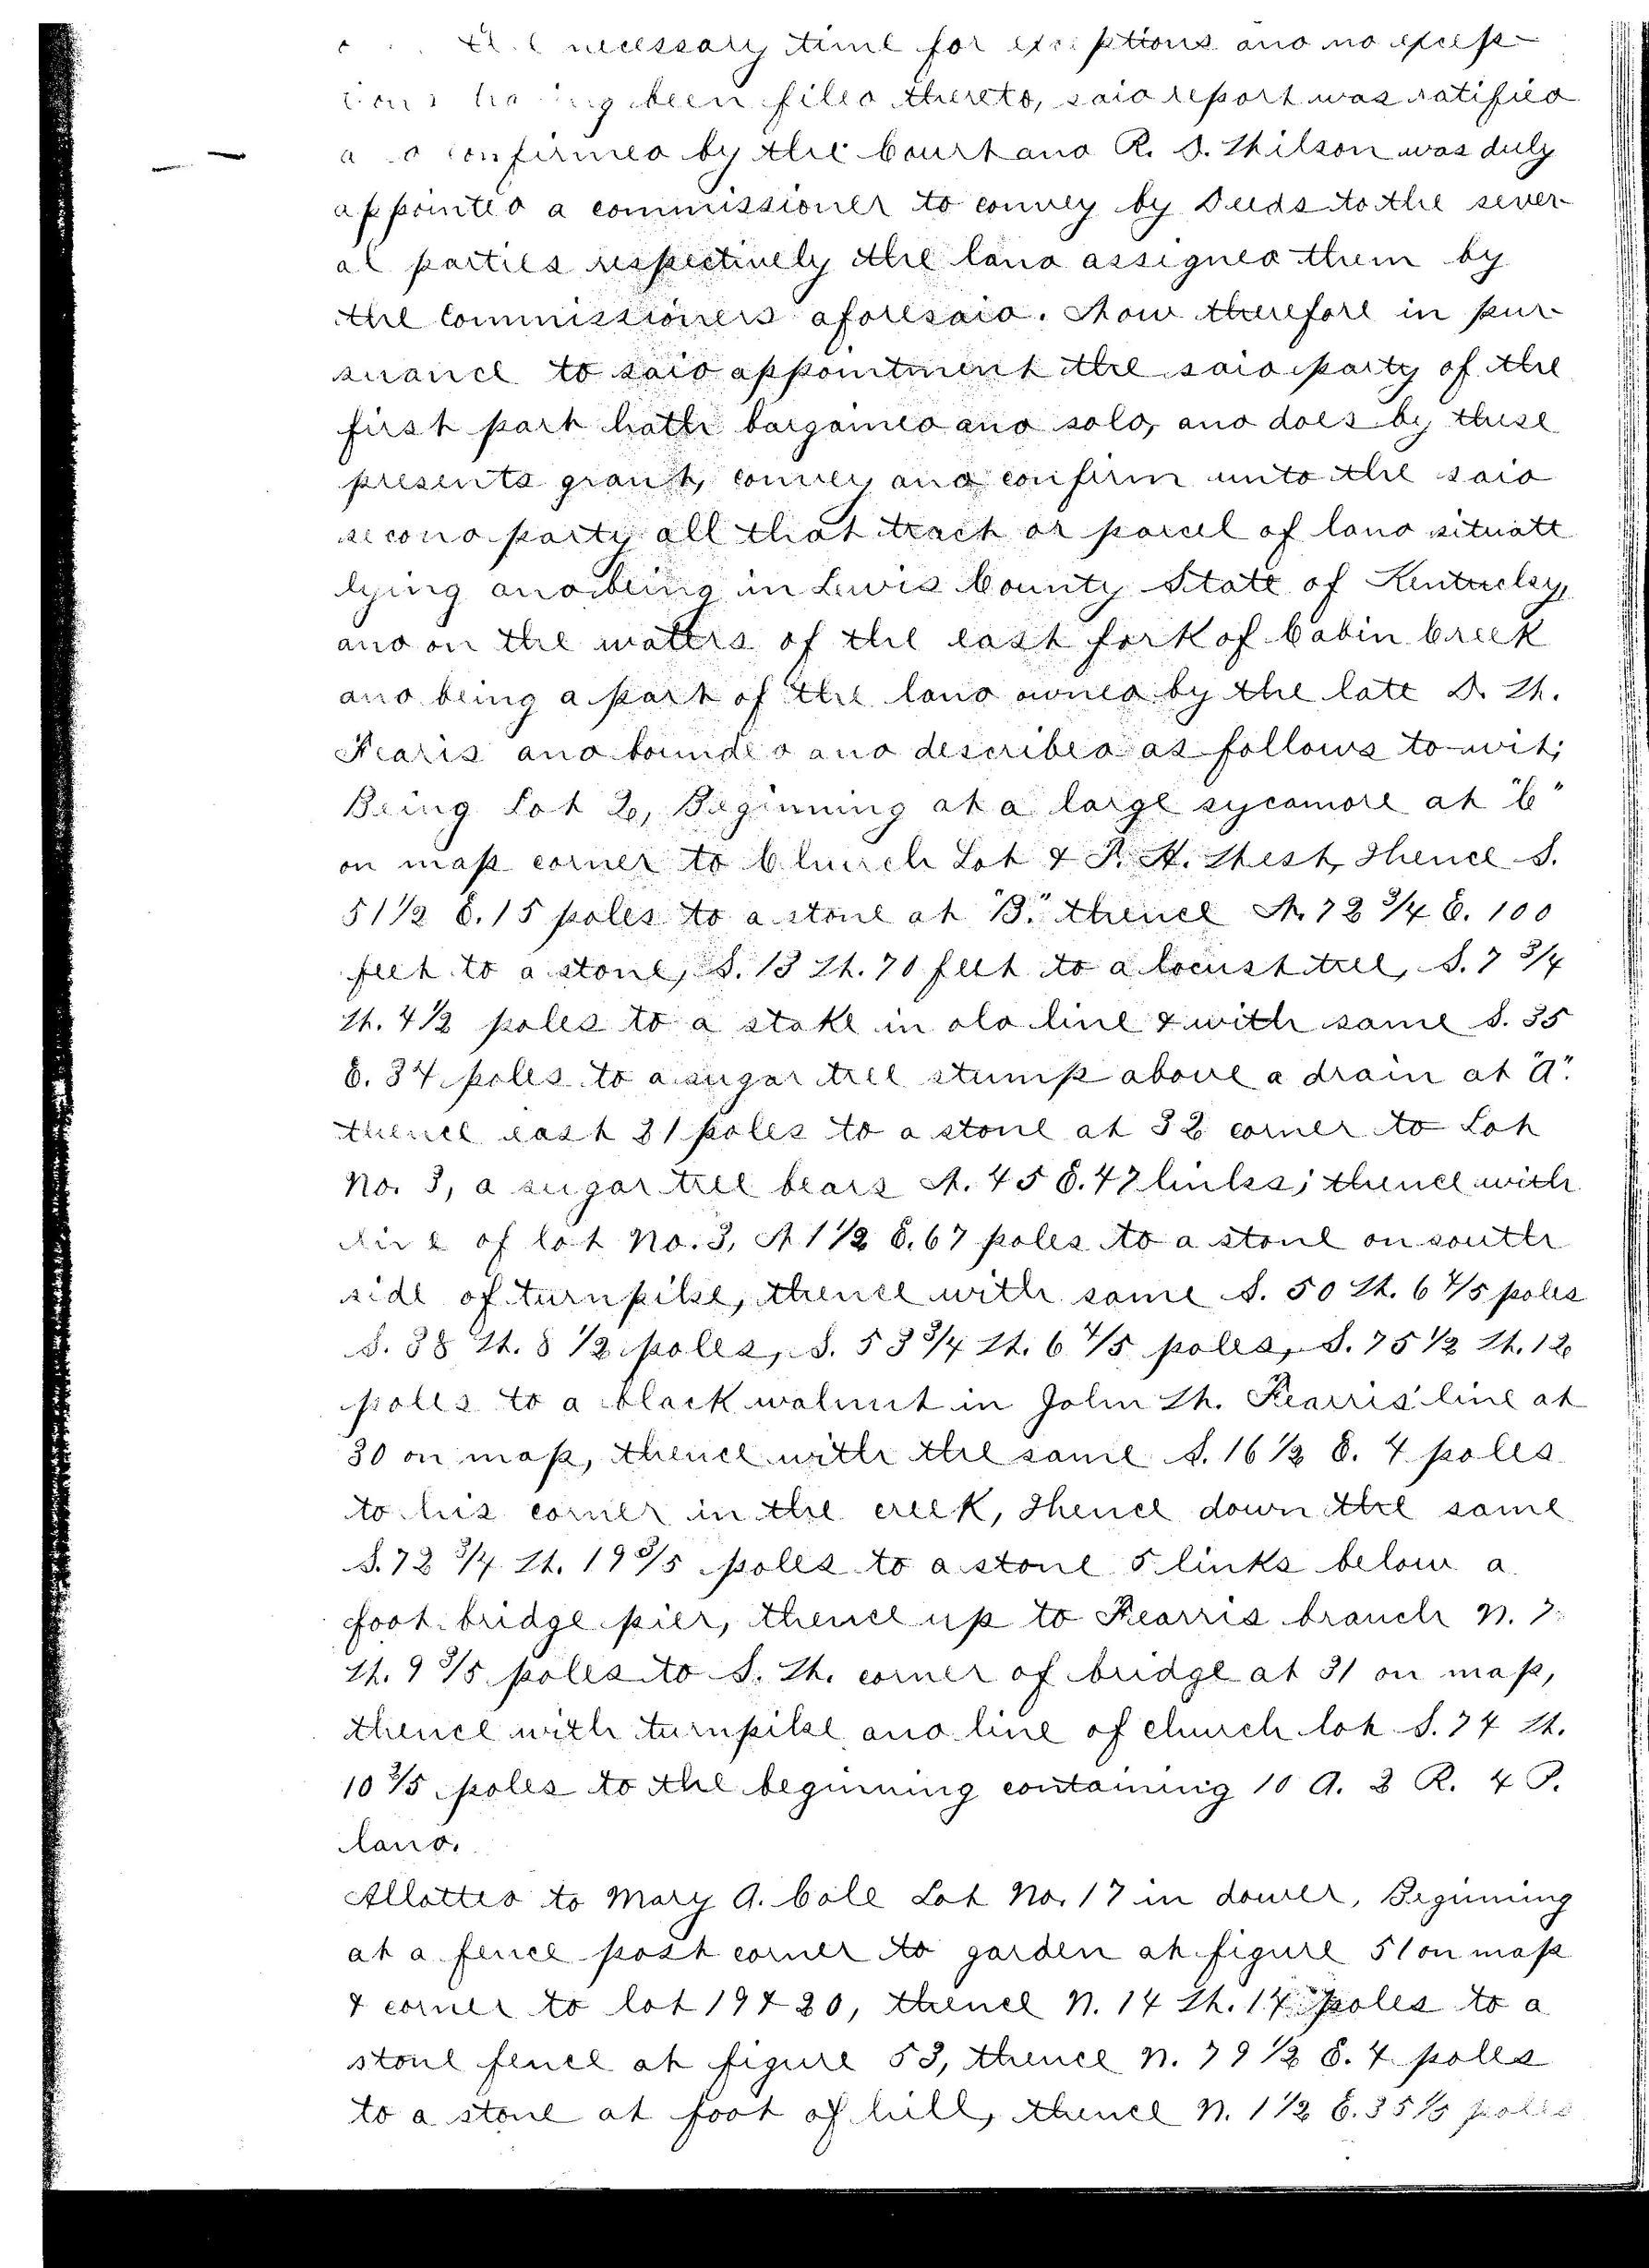 the necessary time for exceptions and no excep-
tions having been filed thereto, said report was ratified
and confirmed by the Court and R. D. Wilson was duly
appointed a commissioner to convey by Deeds to the sever-
al parties respectively the land assigned them by
the Commissioners aforesaid. Now therefore in pur-
suance to said appointment the said party of the
first part hath bargained and sold, and does by these
presents grant, convey and confirm unto the said
second party all that tract or parcel of land situate
lying and being in Lewis County State of Kentucky,
and on the waters of the east fork of Cabin Creek
and being a part of the land owned by the late D. W.
Fearis and bounded and described as follows to-wit;
Being Lot 2, Beginning at a large sycamore at "C"
on map corner to Church Lot & R. H. West, Thence S.
51 1/2 E. 15 poles to a stone at "B." thence N. 72 3/4 E. 100
feet to a stone, S. 13 W. 70 feet to a locust tree, S. 7 3/4
W. 4 1/2 poles to a stake in old line & with same S. 35
E. 34 poles to a sugar tree stump above a drain at "A".
thence east 31 poles to a stone at 32 corner to Lot
No. 3, a sugar tree bears N. 45 E. 47 links; thence with
line of lot No. 3, N 1 1/2 E. 67 poles to a stone on south
side of turnpike, thence with same S. 50 W. 6 4/5 poles
S. 38 W. 8 1/2 poles, S. 53 3/4 W. 6 4/5 poles, S. 75 1/2 W. 12
poles to a black walnut in John W. Fearris' line at
30 on map, thence with the same S. 16 1/2 E. 4 poles
to his corner in the creek, Thence down the same
S. 72 3/4 W. 19 3/5 poles to a stone 5 links below a
foot bridge pier, thence up to Fearris branch N. 7
W. 9 3/5 poles to S. W. corner of bridge at 31 on map,
thence with turnpike and line of church lot S. 74 W.
10 3/5 poles to the beginning containing 10 A. 3 R. 4 P.
land.
Allotted to Mary A. Cole Lot No. 17 in dower, Beginning
at a fence post corner to garden at figure 51 on map
& corner to lot 19 & 20, thence N. 14 W. 14 poles to a
stone fence at figure 53, thence N. 79 1/2 E. 4 poles
to a stone at foot of hill, thence N. 1 1/2 E. 35 1/5 poles